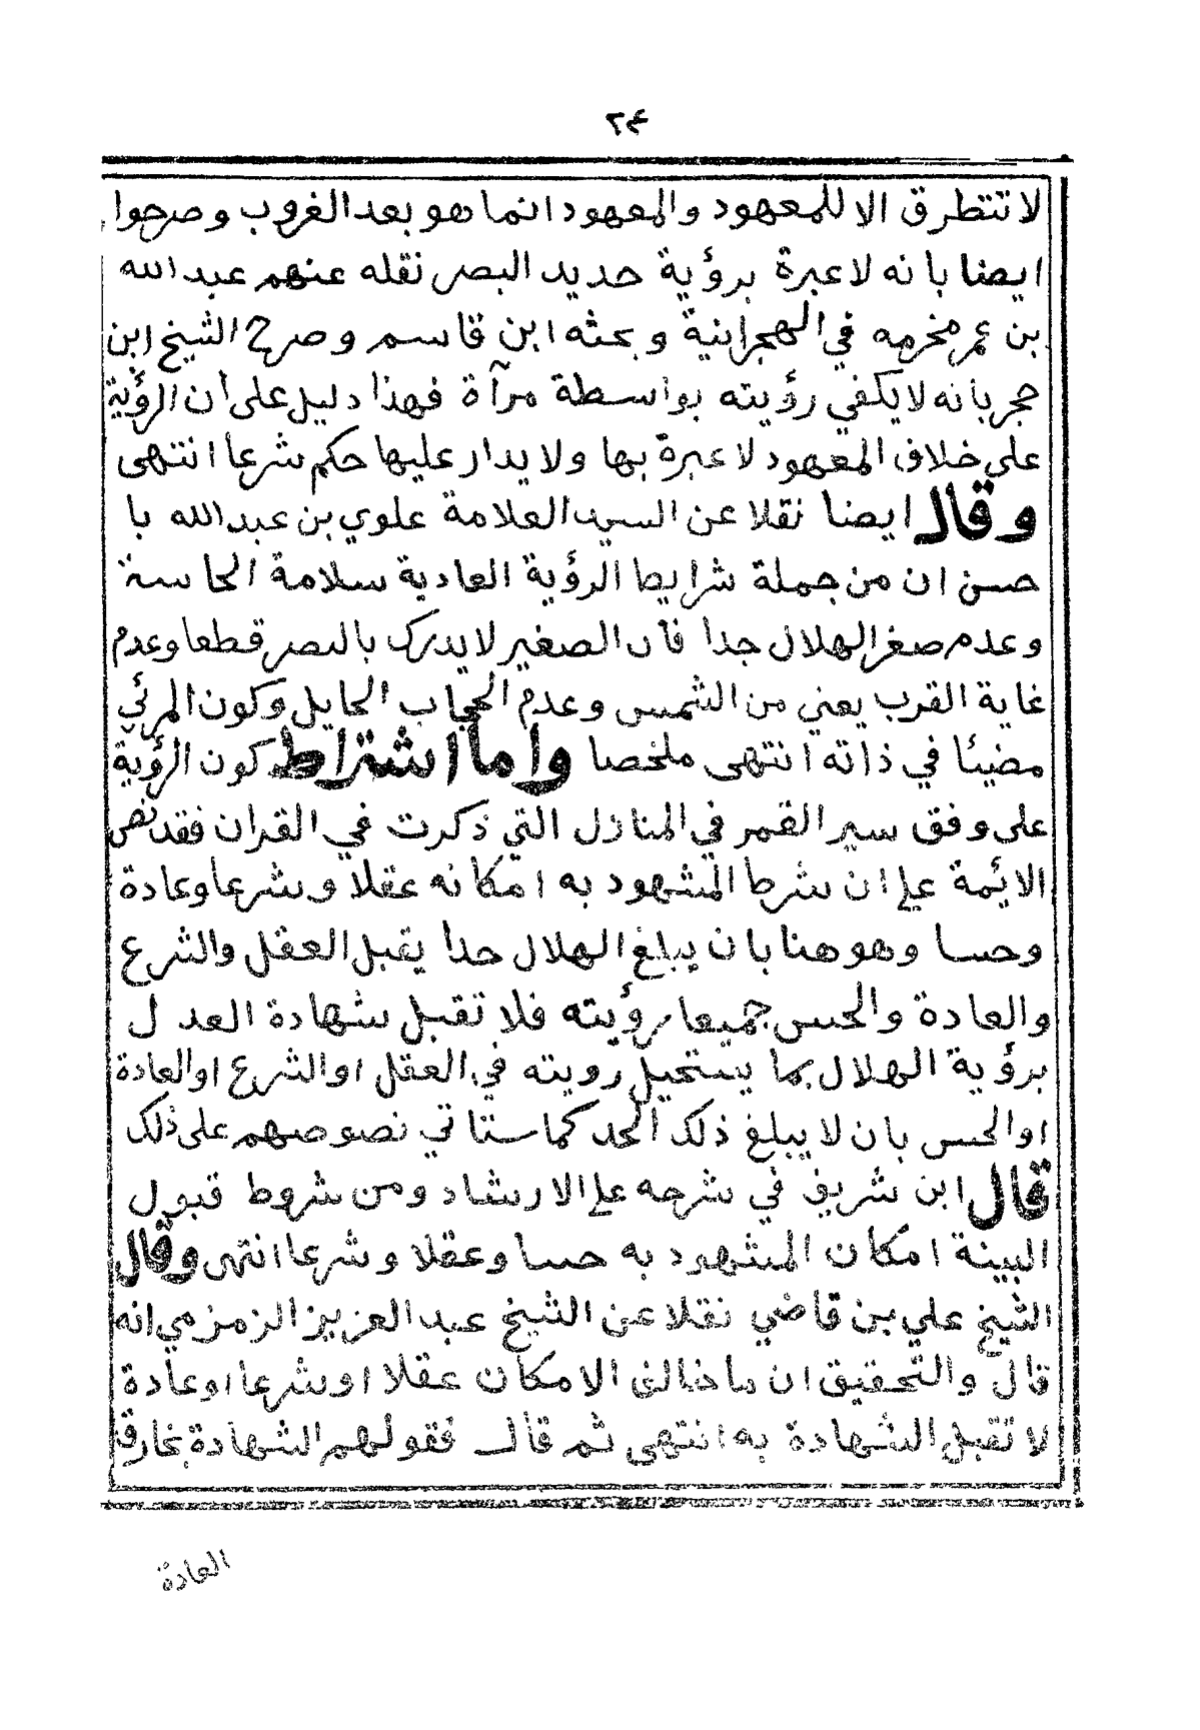 ٢٤
لا تتطرق الا للمعهود والمعهود انما هو بعد الغروب وصرحوا
ايضا بانه لا عبرة برؤية حديد البصر نقله عنهم عبد الله
بن عمر مخرمه في الهجرانية وبحثه ابن قاسم وصرح الشيخ ابن
حجر بانه لا يكفي رؤيته بواسطة مرآة فهذا دليل على أن الرؤية
على خلاف المعهود لا عبرة بها ولا يدار عليها حكم شرعا انتهى
وقال ايضا نقلا عن السيد العلامة علوي بن عبد الله با
حسن ان من جملة شرايط الرؤية العادية سلامة الحاسة
وعدم صغر الهلال جدا فان الصغير لا يدرك بالبصر قطعا وعدم
غاية القرب يعني من الشمس وعدم الحجاب الحايل وكون المرئي
مضيئا في ذاته انتهى ملخصا واما اشتراط كون الرؤية
على وفق سير القمر في المنازل التي ذكرت في القران فقد نص
الائمة على ان شرط المشهود به امكانه عقلا وشرعا وعادة
وحسا وهو هنا بان يبلغ الهلال حدا يقبل العقل والشرع
والعادة والحس جميعا رؤيته فلا تقبل شهادة العدل
برؤية الهلال بما يستحيل رويته في العقل او الشرع او العادة
او الحس بان لا يبلغ ذلك الحد كما ستاتي نصوصهم على ذلك
قال ابن شريف في شرحه على الارشاد ومن شروط قبول
البينة امكان المشهود به حسا وعقلا وشرعا انتهى وقال
الشيخ علي بن قاضي نقلا عن الشيخ عبد العزيز الزمزمي انه
قال والتحقيق ان ما خالف الامكان عقلا او شرعا او عادة
لا تقبل الشهادة به انتهى ثم قال فقولهم الشهادة بخارق
العادة